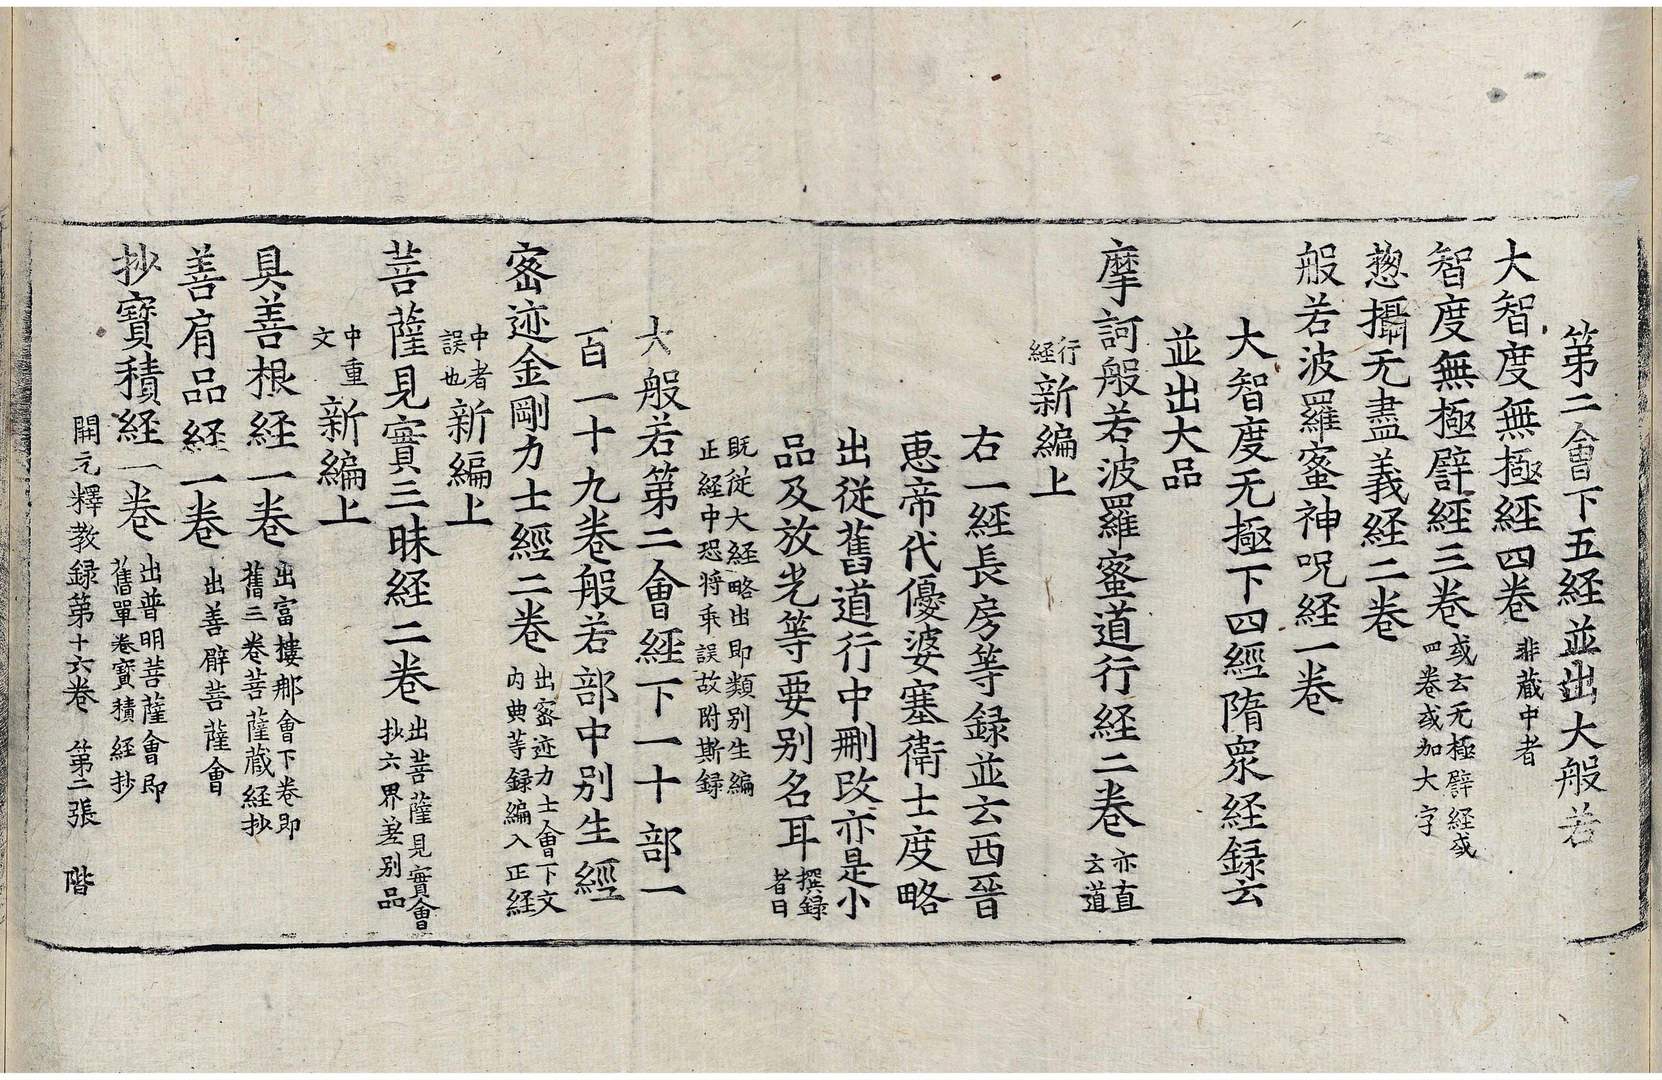 第二會下五経並出大般若
大智度無極経四卷非蔵中者
智度無極譬経三卷或云无極譬経或四卷或加大字
惣攝无盡義経二卷
般若波羅蜜神呪経一卷
大智度无極下四經隋衆経録云
並出大品
摩訶般若波羅蜜道行経二卷亦直云道
行経新編上
右一経長房等録並云西晉
恵帝代優婆塞衛士度略
出從舊道行中刪改亦是小
品及放光等要别名耳撰録者曰
既従大経略出即類别生編正経中恐将乖誤故附斯録
大般若第二會経下一十部一
百一十九卷般若部中别生經
密迹金剛力士經二卷出密迹力士會下文内典等録編入正経
中者誤也新編上
菩薩見實三昧経二卷出菩薩見實會抄六界差别品
中重文新編上
具善根経一卷出富樓那會下卷即舊三卷菩薩蔵経抄
善肩品経一卷出善臂菩薩會
抄寶積経一卷出普明菩薩會即舊單卷寶積経抄
開元釋教録第十六卷 第二張 階